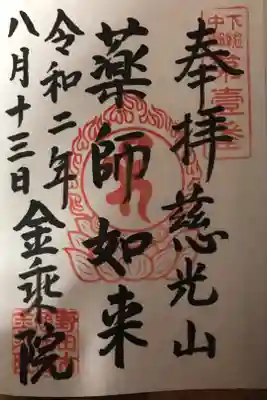 奉拝 慈光山
薬師如来
令和二年
八月十三日 金乗院